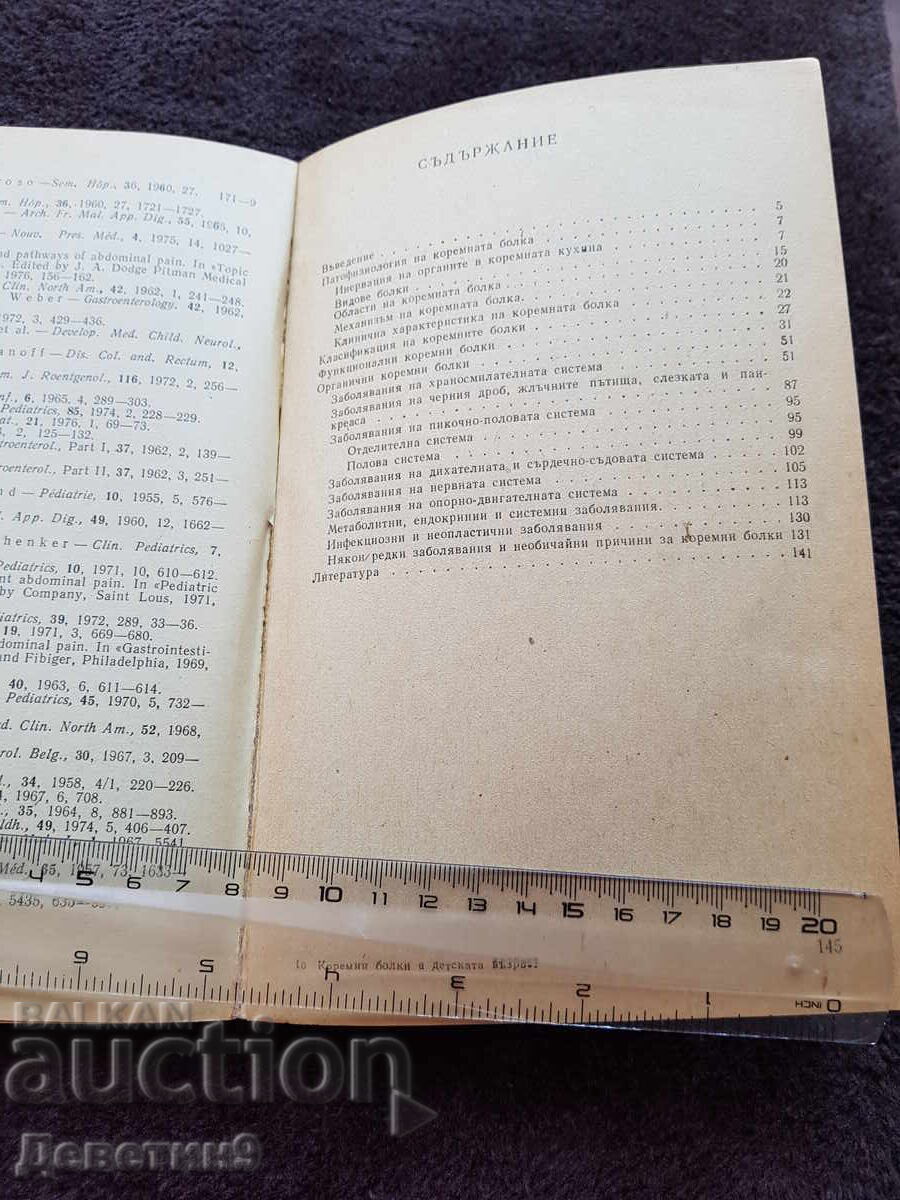 о з о — Sem. Hôp., 36, 1960, 27, 171—9
m. Hôp., 36, 1960, 27, 1721—1727.
— Arch. Fr. Mal. App. Dig., 55, 1965, 10,
— Nouv. Pres. Méd., 4, 1975, 14, 1027—
nd pathways of abdominal pain. In «Topic
. Edited by J. A. Dodge Pitman Medical
1976, 156—162.
Clin. North Am., 42, 1962, 1, 241—248.
Weber — Gastroenterology. 42, 1962,
1972, 3, 429—436.
et al. — Develop. Med. Child. Neurol.,
anoff — Dis. Col. and Rectum, 12,
m. J. Roentgenol., 116, 1972, 2, 256—
nf., 6, 1965. 4, 289—303.
Pediatrics, 85, 1974, 2, 228—229.
at., 21, 1976, 1, 69—73.
3, 2, 125—132.
troenterol., Part I, 37, 1962, 2, 139—
oenterol., Part II, 37, 1962, 3, 251—
nd — Pédiatrie, 10, 1955, 5, 576—
l. App. Dig., 49, 1960, 12, 1662—
chenker — Clin. Pediatrics, 7,
Pediatrics, 10, 1971, 10, 610—612.
nt abdominal pain. In «Pediatric
by Company, Saint Lous, 1971,
diatrics, 39, 1972, 289, 33—36.
19, 1971, 3, 669—680.
dominal pain. In «Gastrointesti-
and Fibiger, Philadelphia, 1969,
40, 1963, 6, 611—614.
Pediatrics, 45, 1970, 5, 732—
d. Clin. North Am., 52, 1968,
rol. Belg., 30, 1967, 3, 209—
l., 34, 1958, 4/1, 220—226.
4, 1967, 6, 708.
., 35, 1964, 8, 881—893.
ldh., 49, 1974, 5, 406—407.
1967, 5541
Méd., 35, 1957, 73, 1633—
5435, 630—
СЪДЪРЖАНИЕ
Въведение 5
Патофизиология на коремната болка 7
Инервация на органите в коремната кухина 7
Видове болки 15
Области на коремната болка 20
Механизъм на коремната болка. 21
Клинична характеристика на коремната болка 22
Класификация на коремните болки 27
Функционални коремни болки 31
Органични коремни болки 51
Заболявания на храносмилателната система 51
Заболявания на черния дроб, жлъчните пътища, слезката и пан-
креаса 87
Заболявания на пикочно-половата система 95
Отделителна система 95
Полова система 99
Заболявания на дихателната и сърдечно-съдовата система 102
Заболявания на нервната система 105
Заболявания на опорно-двигателната система 113
Метаболитни, ендокринни и системни заболявания. 113
Инфекциозни и неопластични заболявания 130
Някои редки заболявания и необичайни причини за коремни болки 131
Литература 141
4 5 6 7 8 9 10 11 12 13 14 15 16 17 18 19 20
145
Коремни болки в детската възраст
6 5 4 3 2 1 0 INCH
BALKAN
auction
Деветин9